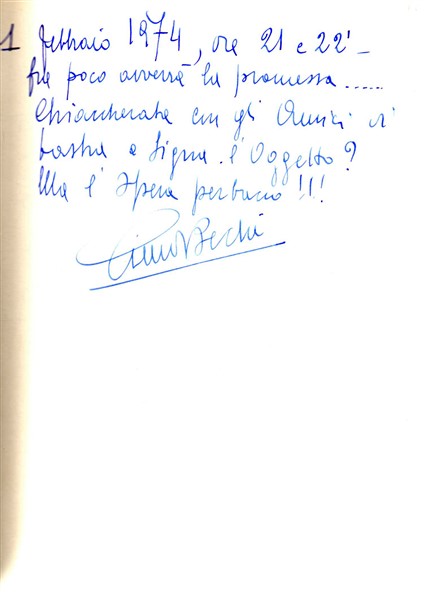 1 Febbraio 1974, ore 21 e 22' -
fra poco avverrà la promessa.....
Chiaccherata con gli Amici di
Lastra a Signa. l'Oggetto?
Ma l'Opera perbacco!!!
Gino Bechi